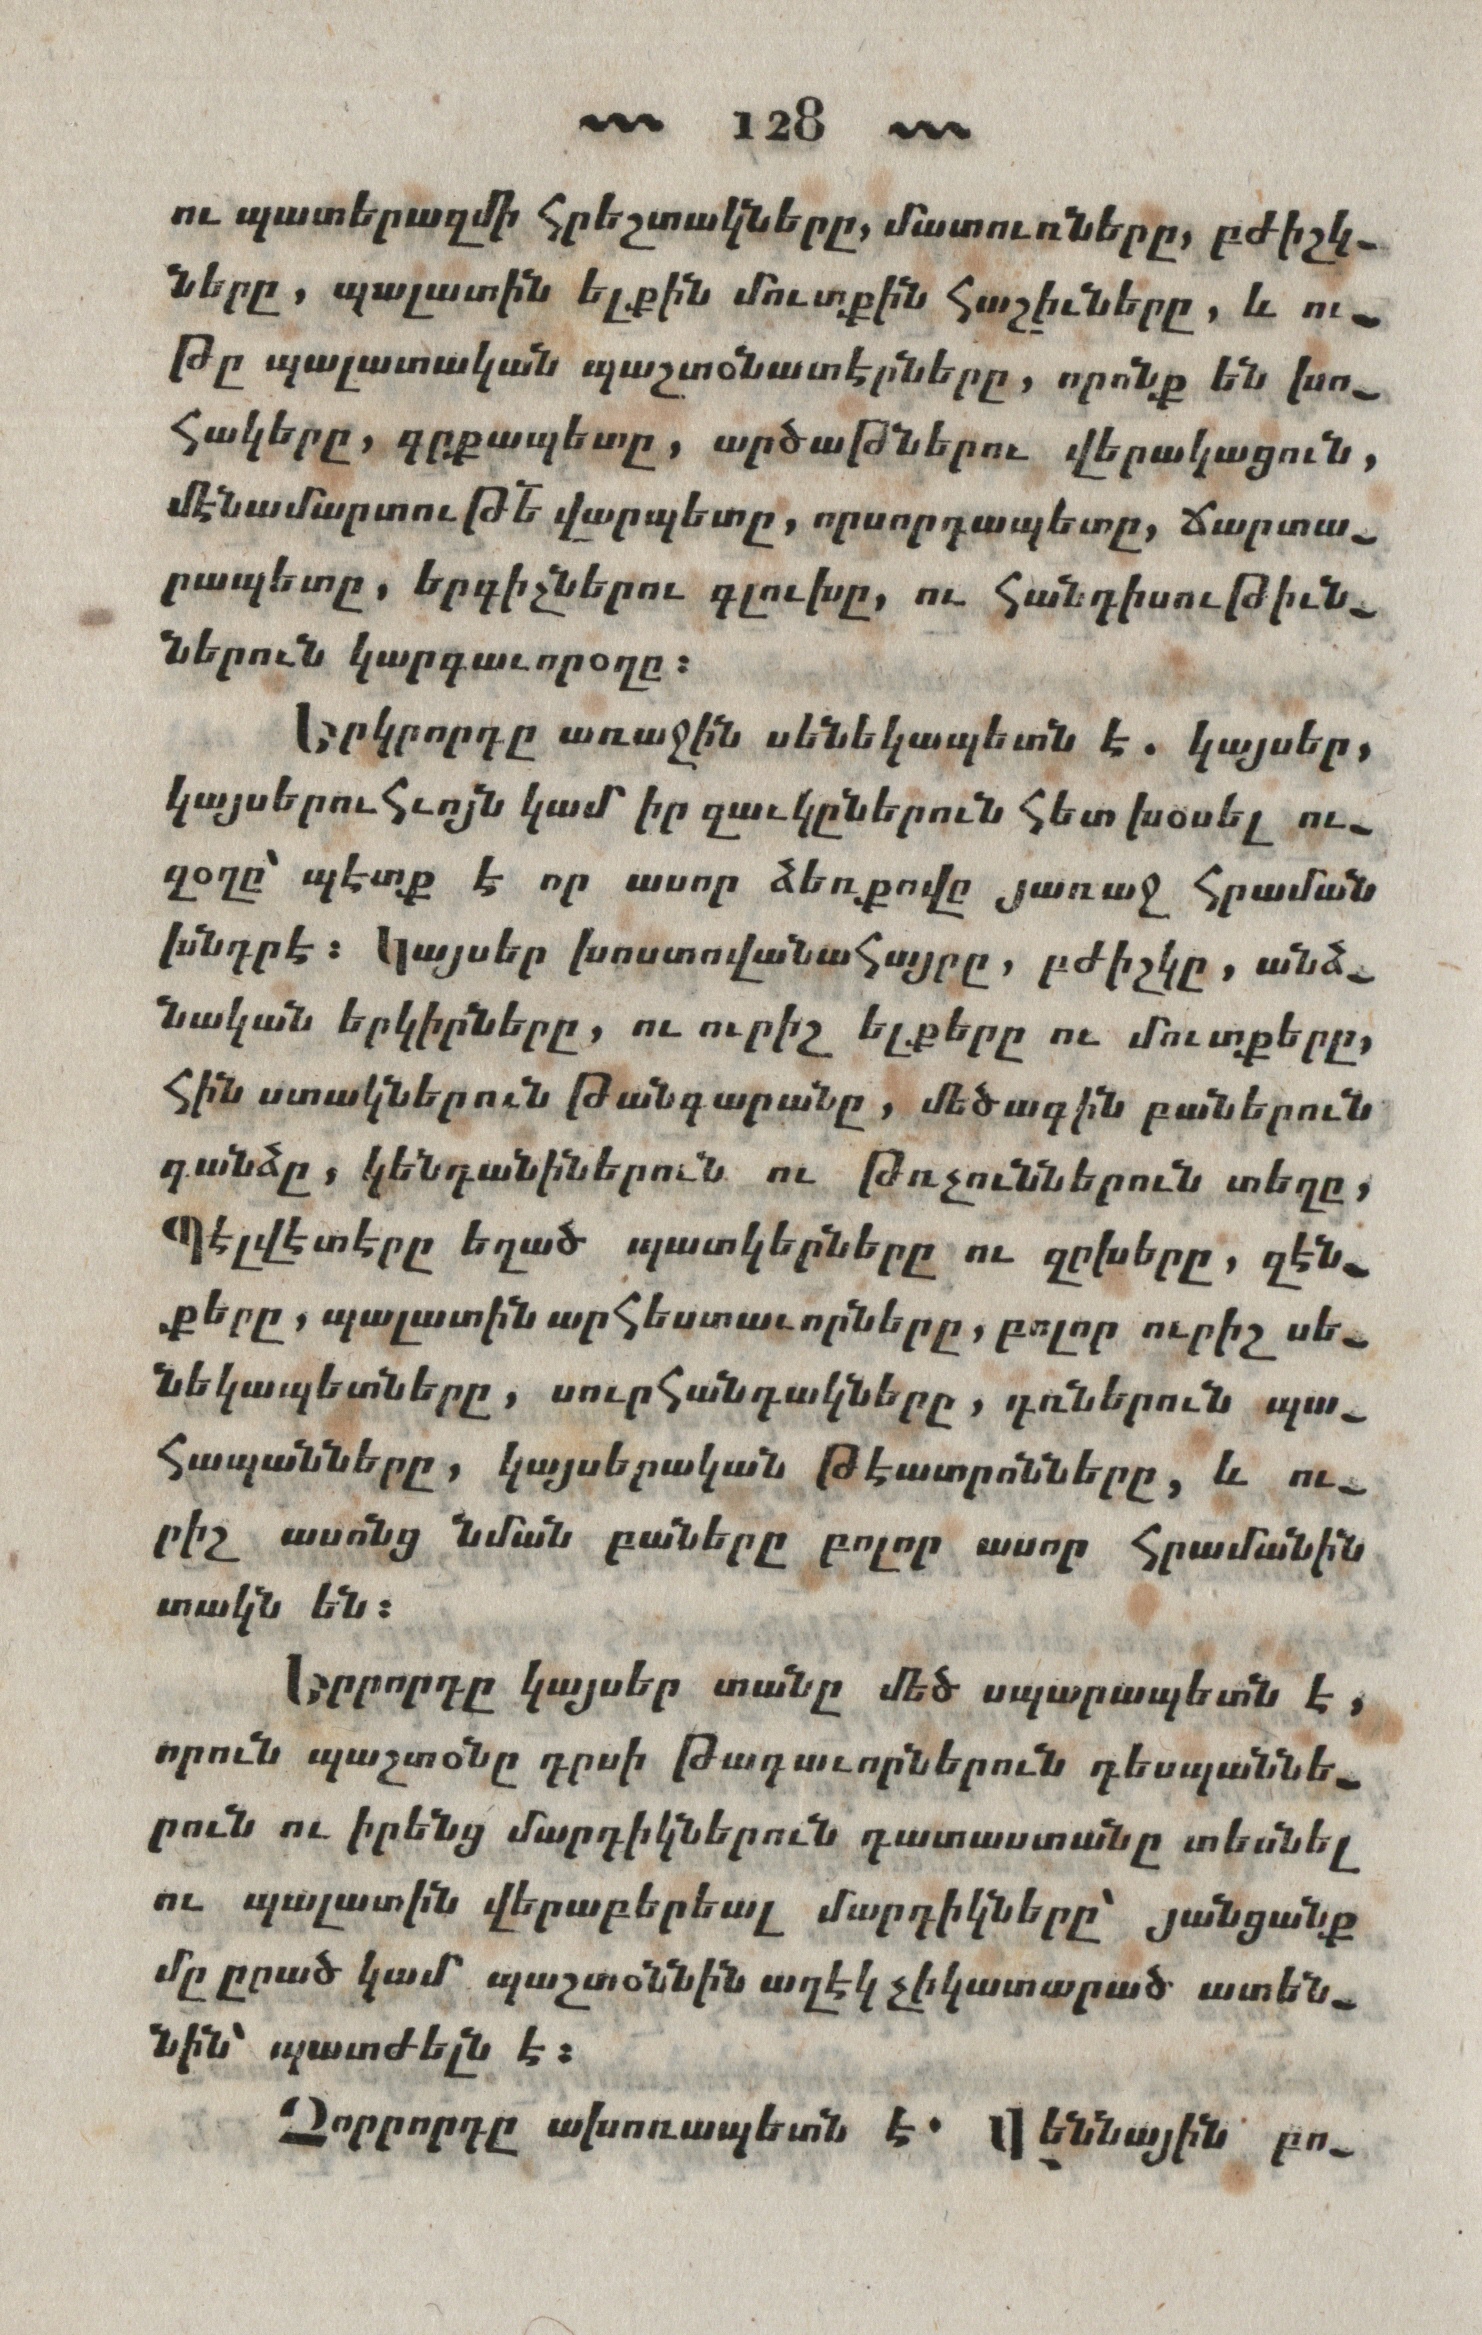 128
ու պատերազմի հրեշտակները, մատուռները, բժիշկ-
ները, պալատին ելքին մուտքին հաշիւները, և ու-
թը պալատական պաշտօնատէրները, որոնք են խո-
հակերը, գրքապետը, արծաթներու վերակացուն,
մէնամարտութե՟ վարպետը, որսորդապետը, ճարտա-
րապետը, երգիչներու գլուխը, ու հանդիսութիւն-
ներուն կարգաւորօղը։
Երկրորդը առաջին սենեկապետն է. կայսեր,
կայսերուհւոյն կամ իր զաւկըներուն հետ խօսել ու-
զօղը՝ պէտք է որ ասոր ձեռքովը յառաջ հրաման
խնդրէ։ Կայսեր խոստովանահայրը, բժիշկը, անձ-
նական երկիրները, ու ուրիշ ելքերը ու մուտքերը,
հին ստակներուն թանգարանը, մեծագին բաներուն
գանձը, կենդանիներուն ու թռչուններուն տեղը,
Պէլվէտէրը եղած պատկերները ու գըխերը, զէն-
քերը, պալատին արհեստաւորները, բոլոր ուրիշ սե-
նեկապետները, սուրհանդակները, դռներուն պա-
հապանները, կայսերական թէատրոնները, և ու-
րիշ ասոնց նման բաները բոլոր ասոր հրամանին
տակն են։
Երրորդը կայսեր տանը մեծ սպարապետն է,
որուն պաշտօնը դրսի թագաւորներուն դեսպաննե-
րուն ու իրենց մարդիկներուն դատաստանը տեսնել
ու պալատին վերաբերեալ մարդիկները՝ յանցանք
մը ըրած կամ պաշտօննին աղէկ չիկատարած ատեն-
նին՝ պատժելն է։
Չորրորդը ախոռապետն է. Վէննային բո-